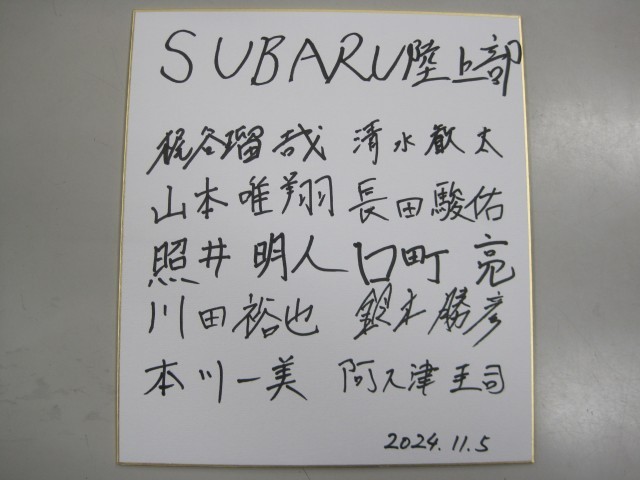 SUBARU陸上部
梶谷瑠哉 清水歓太
山本唯翔 長田駿佑
照井明人 口町亮
川田裕也 鈴木勝彦
本川一美 阿久津圭司
2024.11.5